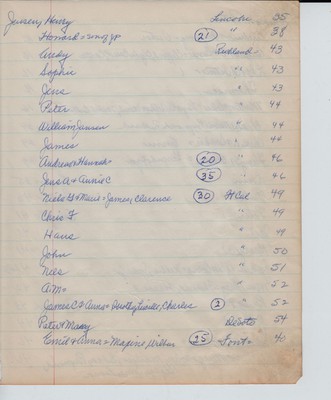 Jensen, Henry Lincoln 35
Howard 21 " 38
Andy Richland 43
Sophie " 43
Jens " 43
Peter " 44
William Jensen " 44
James " 44
Andrew & Hannah 20 " 46
Jens A & Annie C 35 " 46
Niels & Marie - James, Clarence 30 St Cal 49
Chris F " 49
Hans " 49
John " 50
Nels " 51
A.M. " 52
James C & Anna - Dudley, Lucille, Charles 2 " 52
Peter & Mary DeSoto 54
Emil & Anna - Maxine, Wilbur 25 Font 40